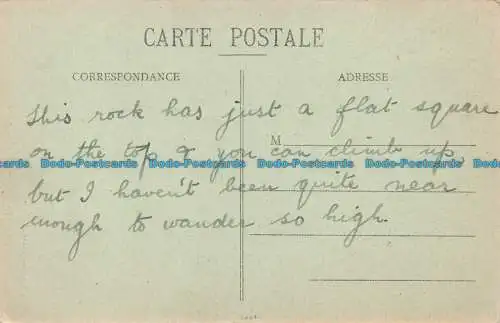 CARTE POSTALE
CORRESPONDANCE
ADRESSE
This rock has just a flat square
M
on the top & you can climb up,
Dodo-Postcards Dodo-Postcards Dodo-Postcards Dodo-Postcards
but I haven't been quite near
enough to wander so high.